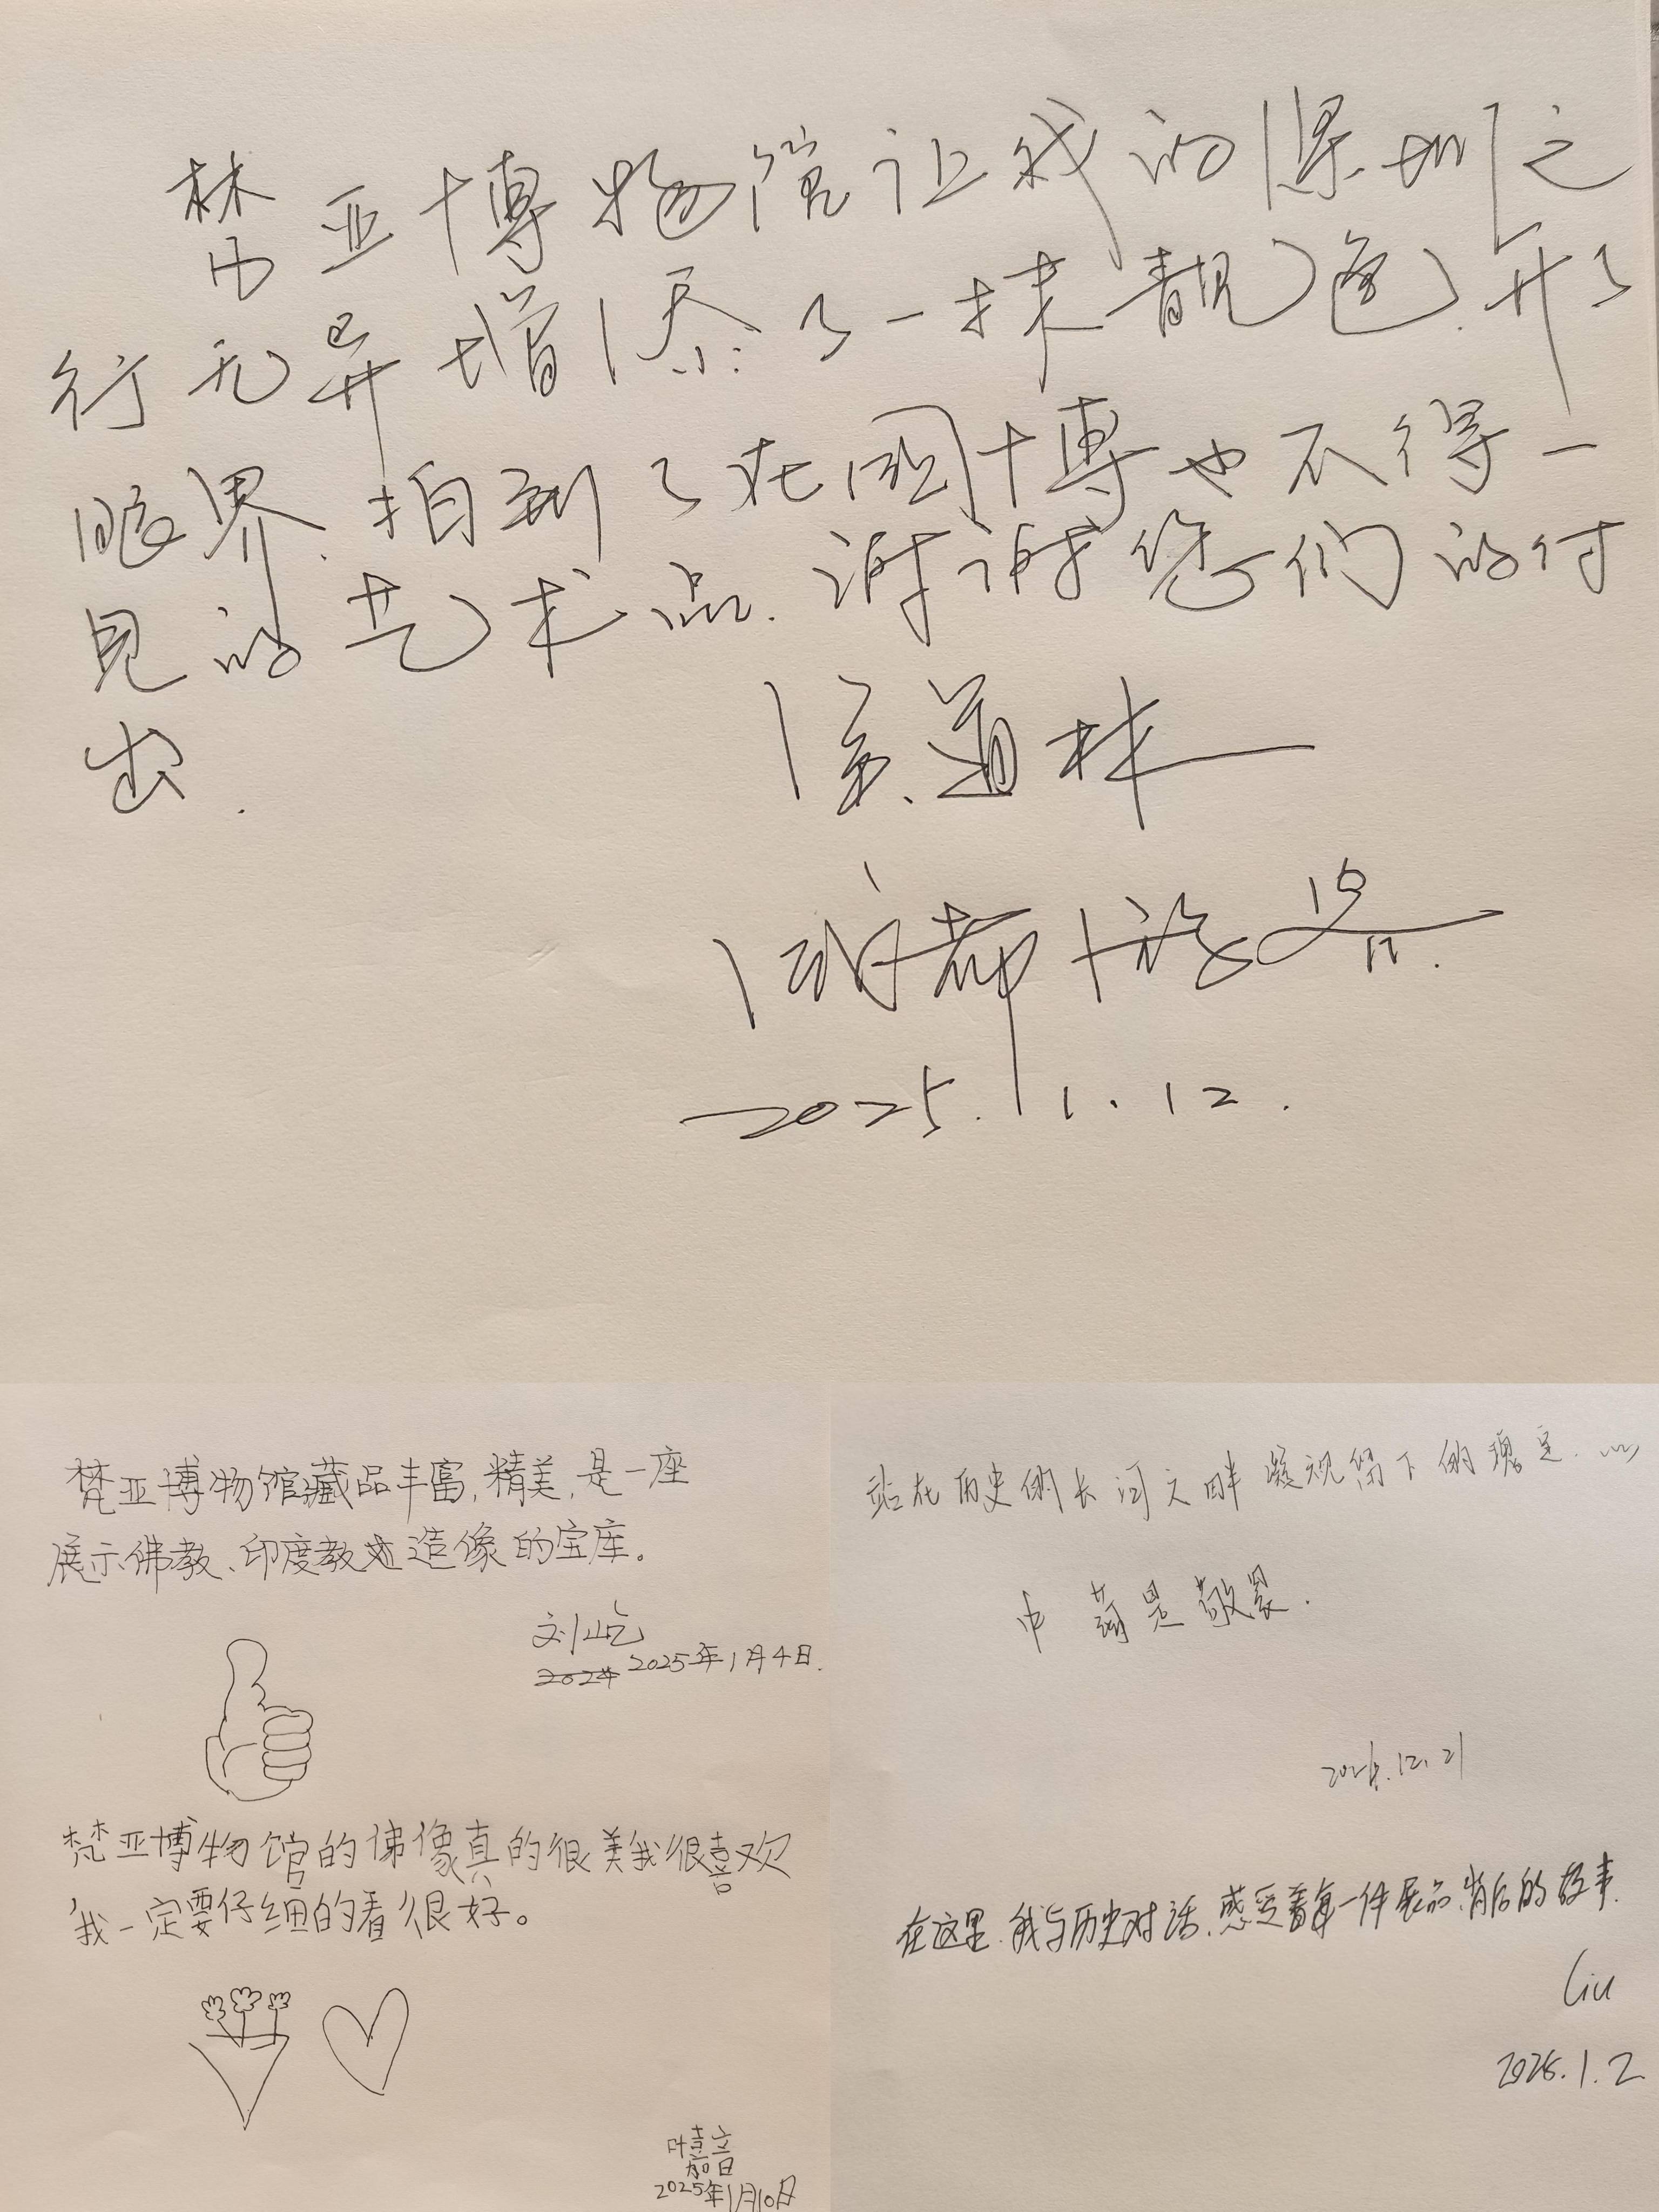 梵亚博物馆让我的深圳之
行无异增添了一抹靓色.开了
眼界.拍到了在国博也不得一
见的艺术品.谢谢您们的付
出.
侯道林
2025.1.12.
梵亚博物馆藏品丰富,精美,是一座
展示佛教、印度教造像的宝库。
刘屹
2024 2025年1月4日.
梵亚博物馆的佛像真的很美我很喜欢
我一定要仔细的看很好。
叶嘉音
2025年1月10日
站在历史的长河之畔凝视留下的瑰宝.心
中满是敬畏.
2024.12.21
在这里.我与历史对话.感受着每一件展品背后的故事.
Liu
2025.1.2